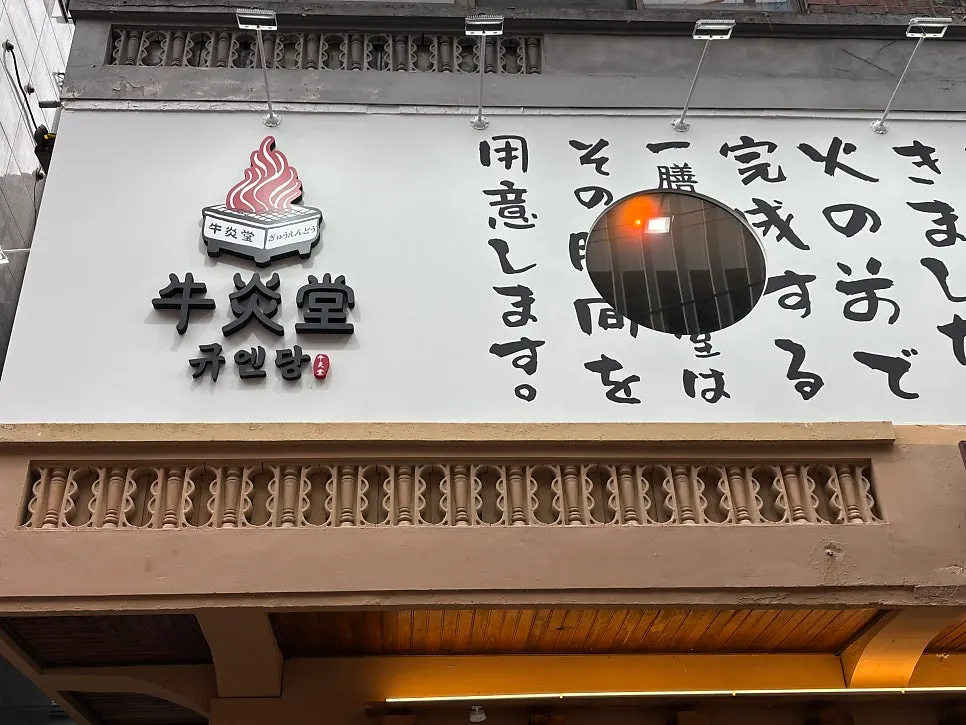 牛炎堂 ぎゅうえんどう
牛炎堂
규엔당
牛炎堂
きました
火の前で
完成する
一膳
堂は
その
間を
用意します。